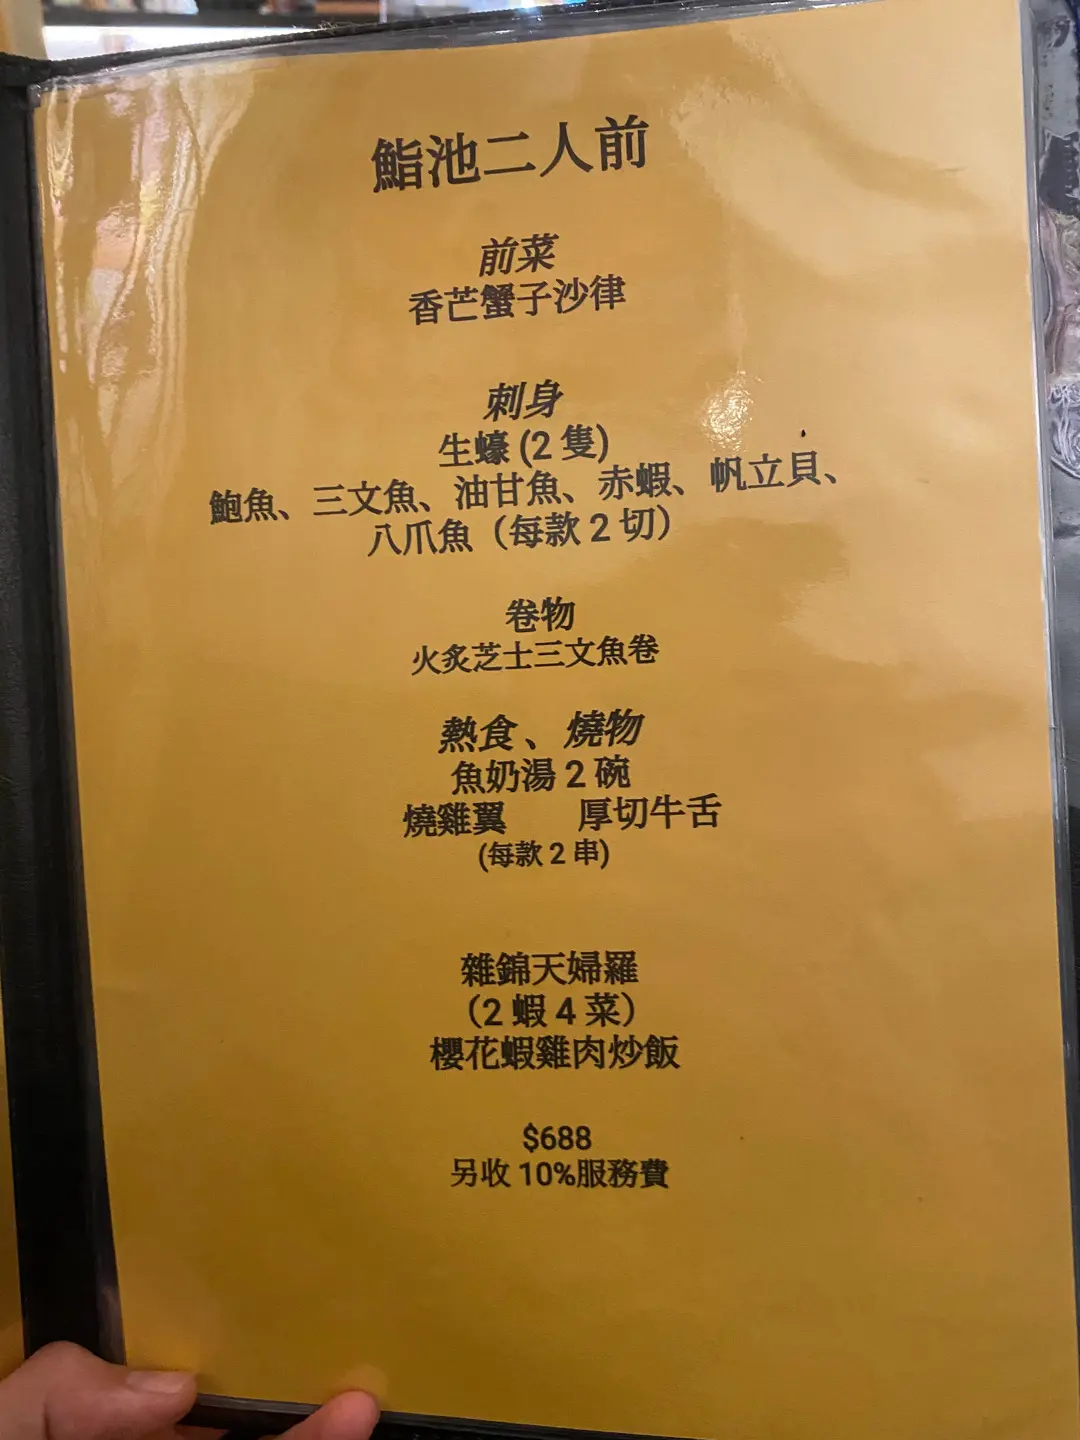 鮨池二人前
前菜
香芒蟹子沙律
刺身
生蠔 (2 隻)
鮑魚、三文魚、油甘魚、赤蝦、帆立貝、
八爪魚（每款 2 切）
卷物
火炙芝士三文魚卷
熱食、燒物
魚奶湯 2 碗
燒雞翼 厚切牛舌
(每款 2 串)
雜錦天婦羅
（2 蝦 4 菜）
櫻花蝦雞肉炒飯
$688
另收 10%服務費